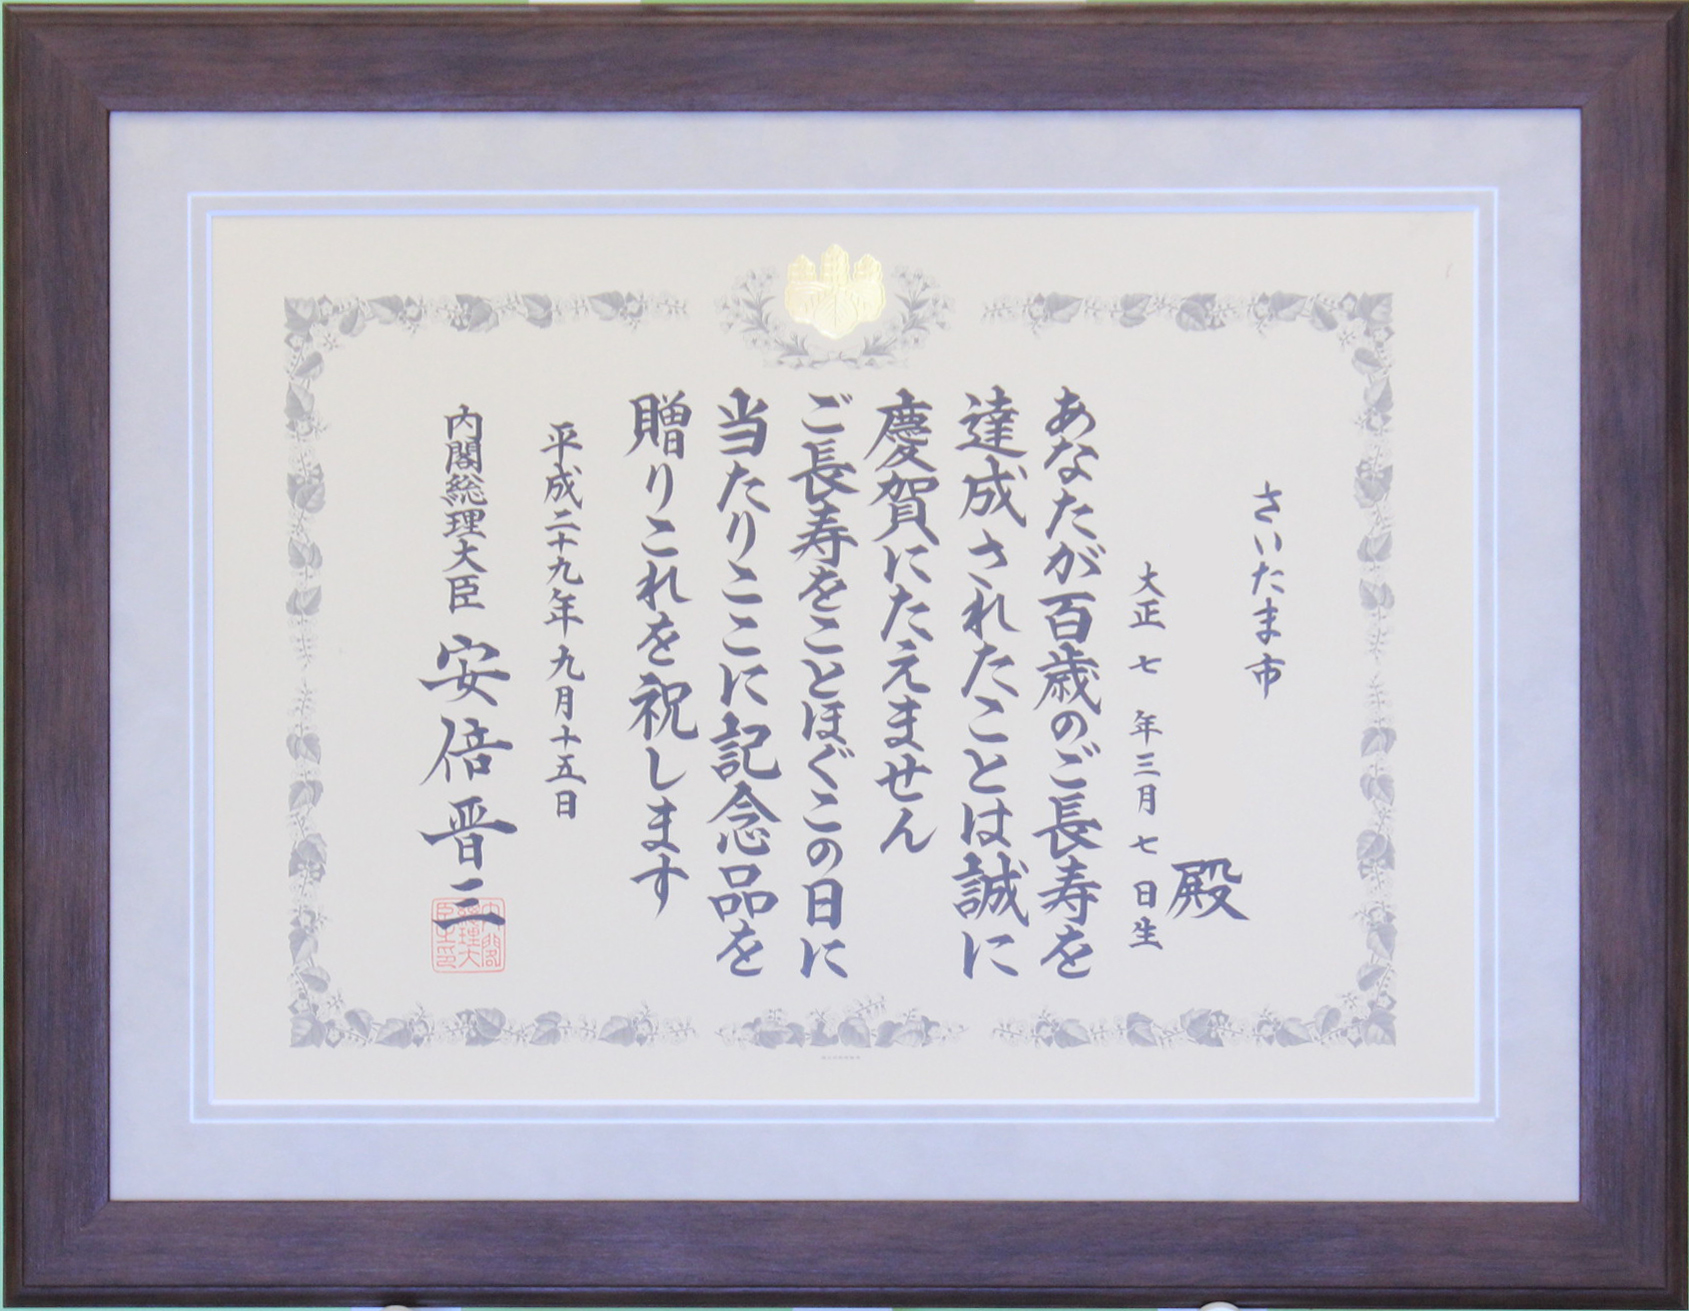 さいたま市
殿
大正七年三月七日生
あなたが百歳のご長寿を
達成されたことは誠に
慶賀にたえません
ご長寿をことほぐこの日に
当たりここに記念品を
贈りこれを祝します
平成二十九年九月十五日
内閣総理大臣 安倍晋三
内閣総理大臣之印